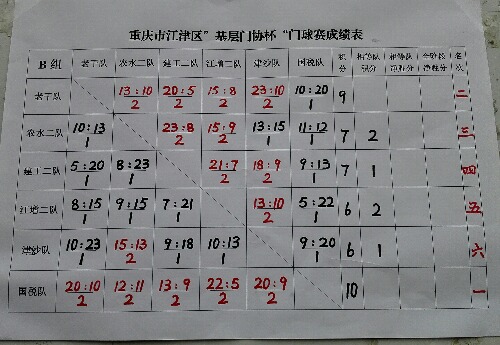 重庆市江津区"基层门协杯"门球赛成绩表
B组 老干队 农水二队 建工二队 江增二队 津纱队 国税队 积分 相等队积分 相等队净胜分 全阶段净胜分 名次
老干队 13:10 2 20:5 2 15:8 2 23:10 2 10:20 1 9 二
农水二队 10:13 1 23:8 2 15:9 2 13:15 1 11:12 1 7 2 三
建工二队 5:20 1 8:23 1 21:7 2 18:9 2 9:13 1 7 1 四
江增二队 8:15 1 9:15 1 7:21 1 13:10 2 5:22 1 6 2 五
津纱队 10:23 1 15:13 2 9:18 1 10:13 1 9:20 1 6 1 六
国税队 20:10 2 12:11 2 13:9 2 22:5 2 20:9 2 10 一